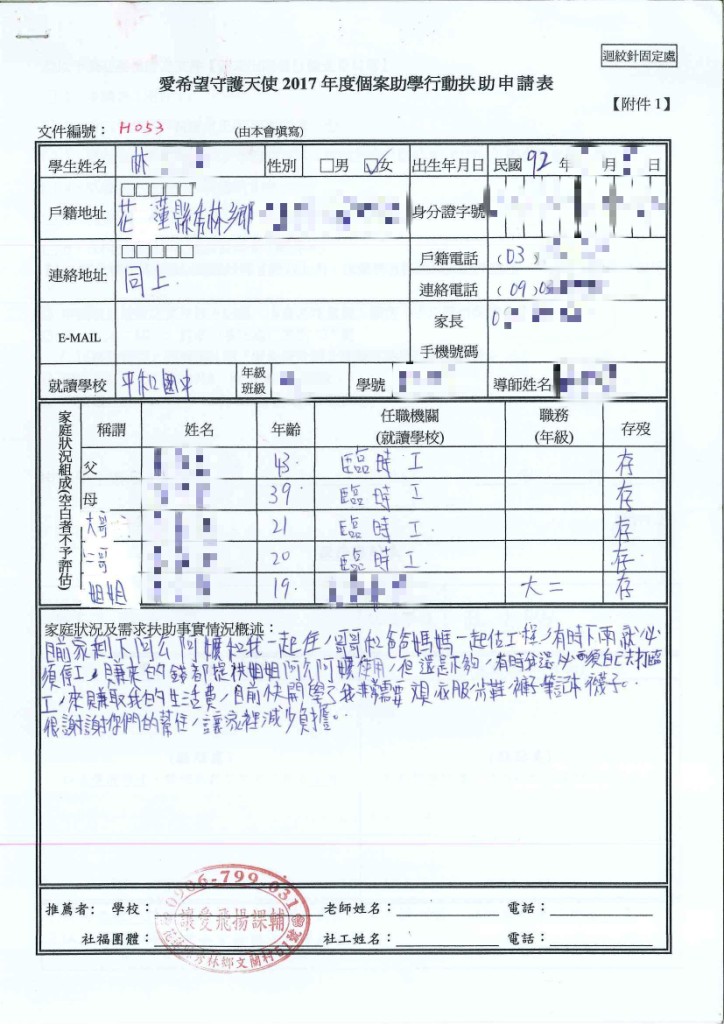 迴紋針固定處
愛希望守護天使 2017 年度個案助學行動扶助申請表
【附件 1】
文件編號： H053 (由本會填寫)
學生姓名 林 性別 □男 ☑女 出生年月日 民國 92 年 月 日
戶籍地址 □□□□□ 花蓮縣秀林鄉 身分證字號
連絡地址 □□□□□ 同上. 戶籍電話 (03)
連絡電話 (09)
E-MAIL 家長
手機號碼
就讀學校 平和國中 年級 班級 學號 導師姓名
家庭狀況組成(空白者不予評估)
稱謂 姓名 年齡 任職機關 (就讀學校) 職務 (年級) 存歿
父 43. 臨時工 存
母 39. 臨時工 存
大哥 21 臨時工. 存
二哥 20 臨時工. 存.
姐姐 19. 大二 存
家庭狀況及需求扶助事實情況概述：
目前家剩下阿公阿嬤和我一起住，哥哥和爸爸媽媽一起估工程，有時下雨就必
須停工，賺來的錢都提供姐姐阿公阿嬤使用，但還是不夠，有時分還必須自己去打臨
工，來賺取我的生活費，目前快開學了我非常需要 衣服 鞋 褲子 筆記本 襪子。
很謝謝你們的幫住，讓家裡減少負擔。
推薦者: 學校： 老師姓名： 電話：
社福團體： 社工姓名： 電話：
0906-799-031
讓愛飛揚課輔
秀林鄉文蘭村